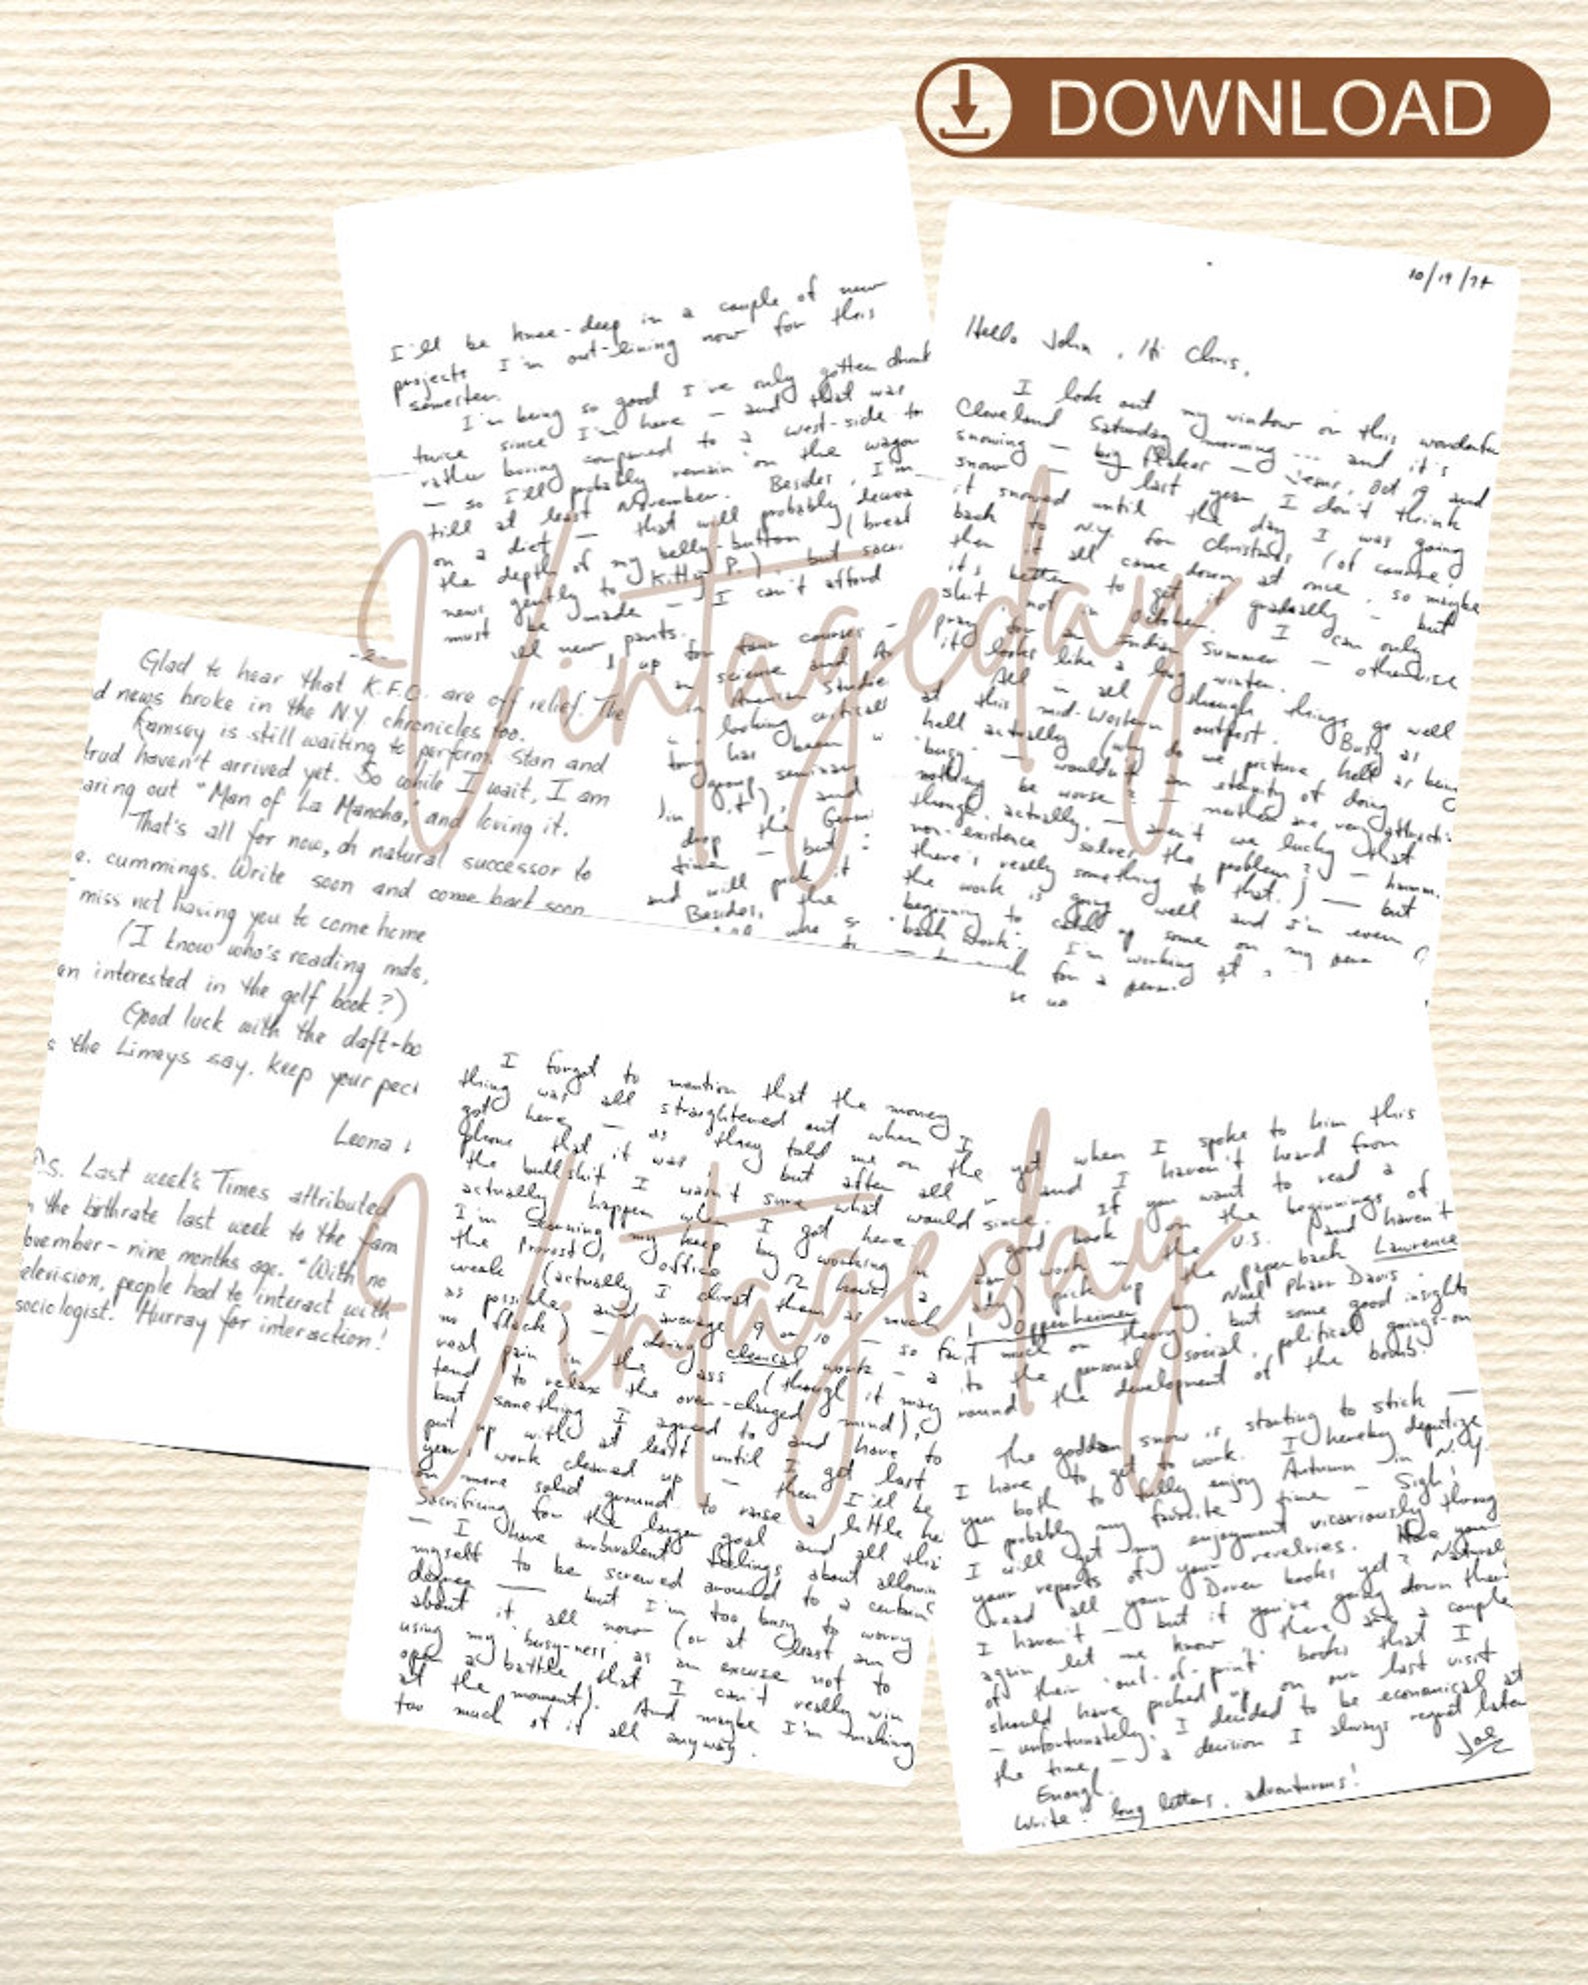 DOWNLOAD
I'll be knee-deep in a couple of new
projects I'm out-lining now for this
semester.
I'm being so good I've only gotten drunk
twice since I'm here — and that was
rather boring compared to a west-side to
— so I'll probably remain on the wagon
till at least November. Besides, I'm
on a diet — that will probably
the depth of my belly-button (break
news gently to Kitty P.), but
must be made — I can't afford
new pants.
up for four courses —
in science and
in American Studies
looking
has been
group seminar
and
drop the
time — but
and will pick it
Besides, the
10/19/74
Hello John, Hi Chris,
I look out my window on this wonderful
Cleveland Saturday morning ... and it's
snowing — big flakes — Jesus, Oct 19 and
snow — last year I don't think
it snowed until the day I was going
back to N.Y. for Christmas (of course,
then it all came down at once, so maybe
it's better to get it gradually — but
shit not in October. I can only
pray for an Indian Summer — otherwise
it looks like a long winter.
All in all though, things go well
at this mid-Western outpost. Busy as
hell actually (why do we picture hell as being
'busy' — wouldn't an eternity of doing
nothing be worse? — neither are very
though, actually, — aren't we lucky that
non-existence solves the problem?) — hmmm.
there's really something to that.) — but
the work is going well and I'm even
beginning to catch up some on my
'back work'. I'm working at
for a
-2-
Glad to hear that K.F.C. are off relief. The
d news broke in the N.Y. chronicles too.
Ramsey is still waiting to perform. Stan and
trud haven't arrived yet. So while I wait, I am
aring out "Man of La Mancha," and loving it.
That's all for now, oh natural successor to
e. cummings. Write soon and come back soon
miss not having you to come home
(I know who's reading mds,
en interested in the golf book?)
Good luck with the daft-bo
s the Limeys say, keep your peck
Leona
P.S. Last week's Times attributed
the birthrate last week to the fam
ovember — nine months ago. "With no
elevision, people had to interact with
sociologist. Hurray for interaction!
I forgot to mention that the money
thing was all straightened out when I
got here — as they told me on the
phone that it was — but after all
the bullshit I wasn't sure what would
actually happen when I got here.
I'm earning my keep by working in
the Provost's office 12 hours a
week (actually I cheat them as much
as possible and average 9 or 10 — so
no flack) — doing clerical work — a
real pain in the ass (though it may
tend to relax the over-charged mind),
but something I agreed to and have to
put up with at least until I get last
year's work cleaned up — then I'll be
on more solid ground to raise a little he
Sacrificing for the larger goal and all this
— I have ambivalent feelings about allowin
myself to be screwed around to a certain
degree — but I'm too busy to worry
about it all now (or at least am
using my 'busy-ness' as an excuse not to
open a battle that I can't really win
at the moment). And maybe I'm making
too much of it all anyway.
yet when I spoke to him this
and I haven't heard from
since. If you want to read a
good book on the beginnings of
work in the U.S. (and haven't
pick up the paperback Lawrence
Oppenheimer by Nuel Pharr Davis
much on theory, but some good insights
to the personal, social, political goings-on
round the development of the bomb.
The goddam snow is starting to stick —
I have to get to work. I hereby deputize
you both to fully enjoy Autumn in N.Y.
probably my favorite time — Sigh!
I will get my enjoyment vicariously throug
your reports of your revelries. Have you
read all your Dover books yet? Natural
I haven't — but if you're going down ther
again let me know — there are a couple
of their 'out-of-print' books that I
should have picked up on our last visit
— unfortunately, I decided to be economical at
the time — a decision I always regret later
Enough.
Joe
Write: long letters, adventurous!
Vintageday
Vintageday